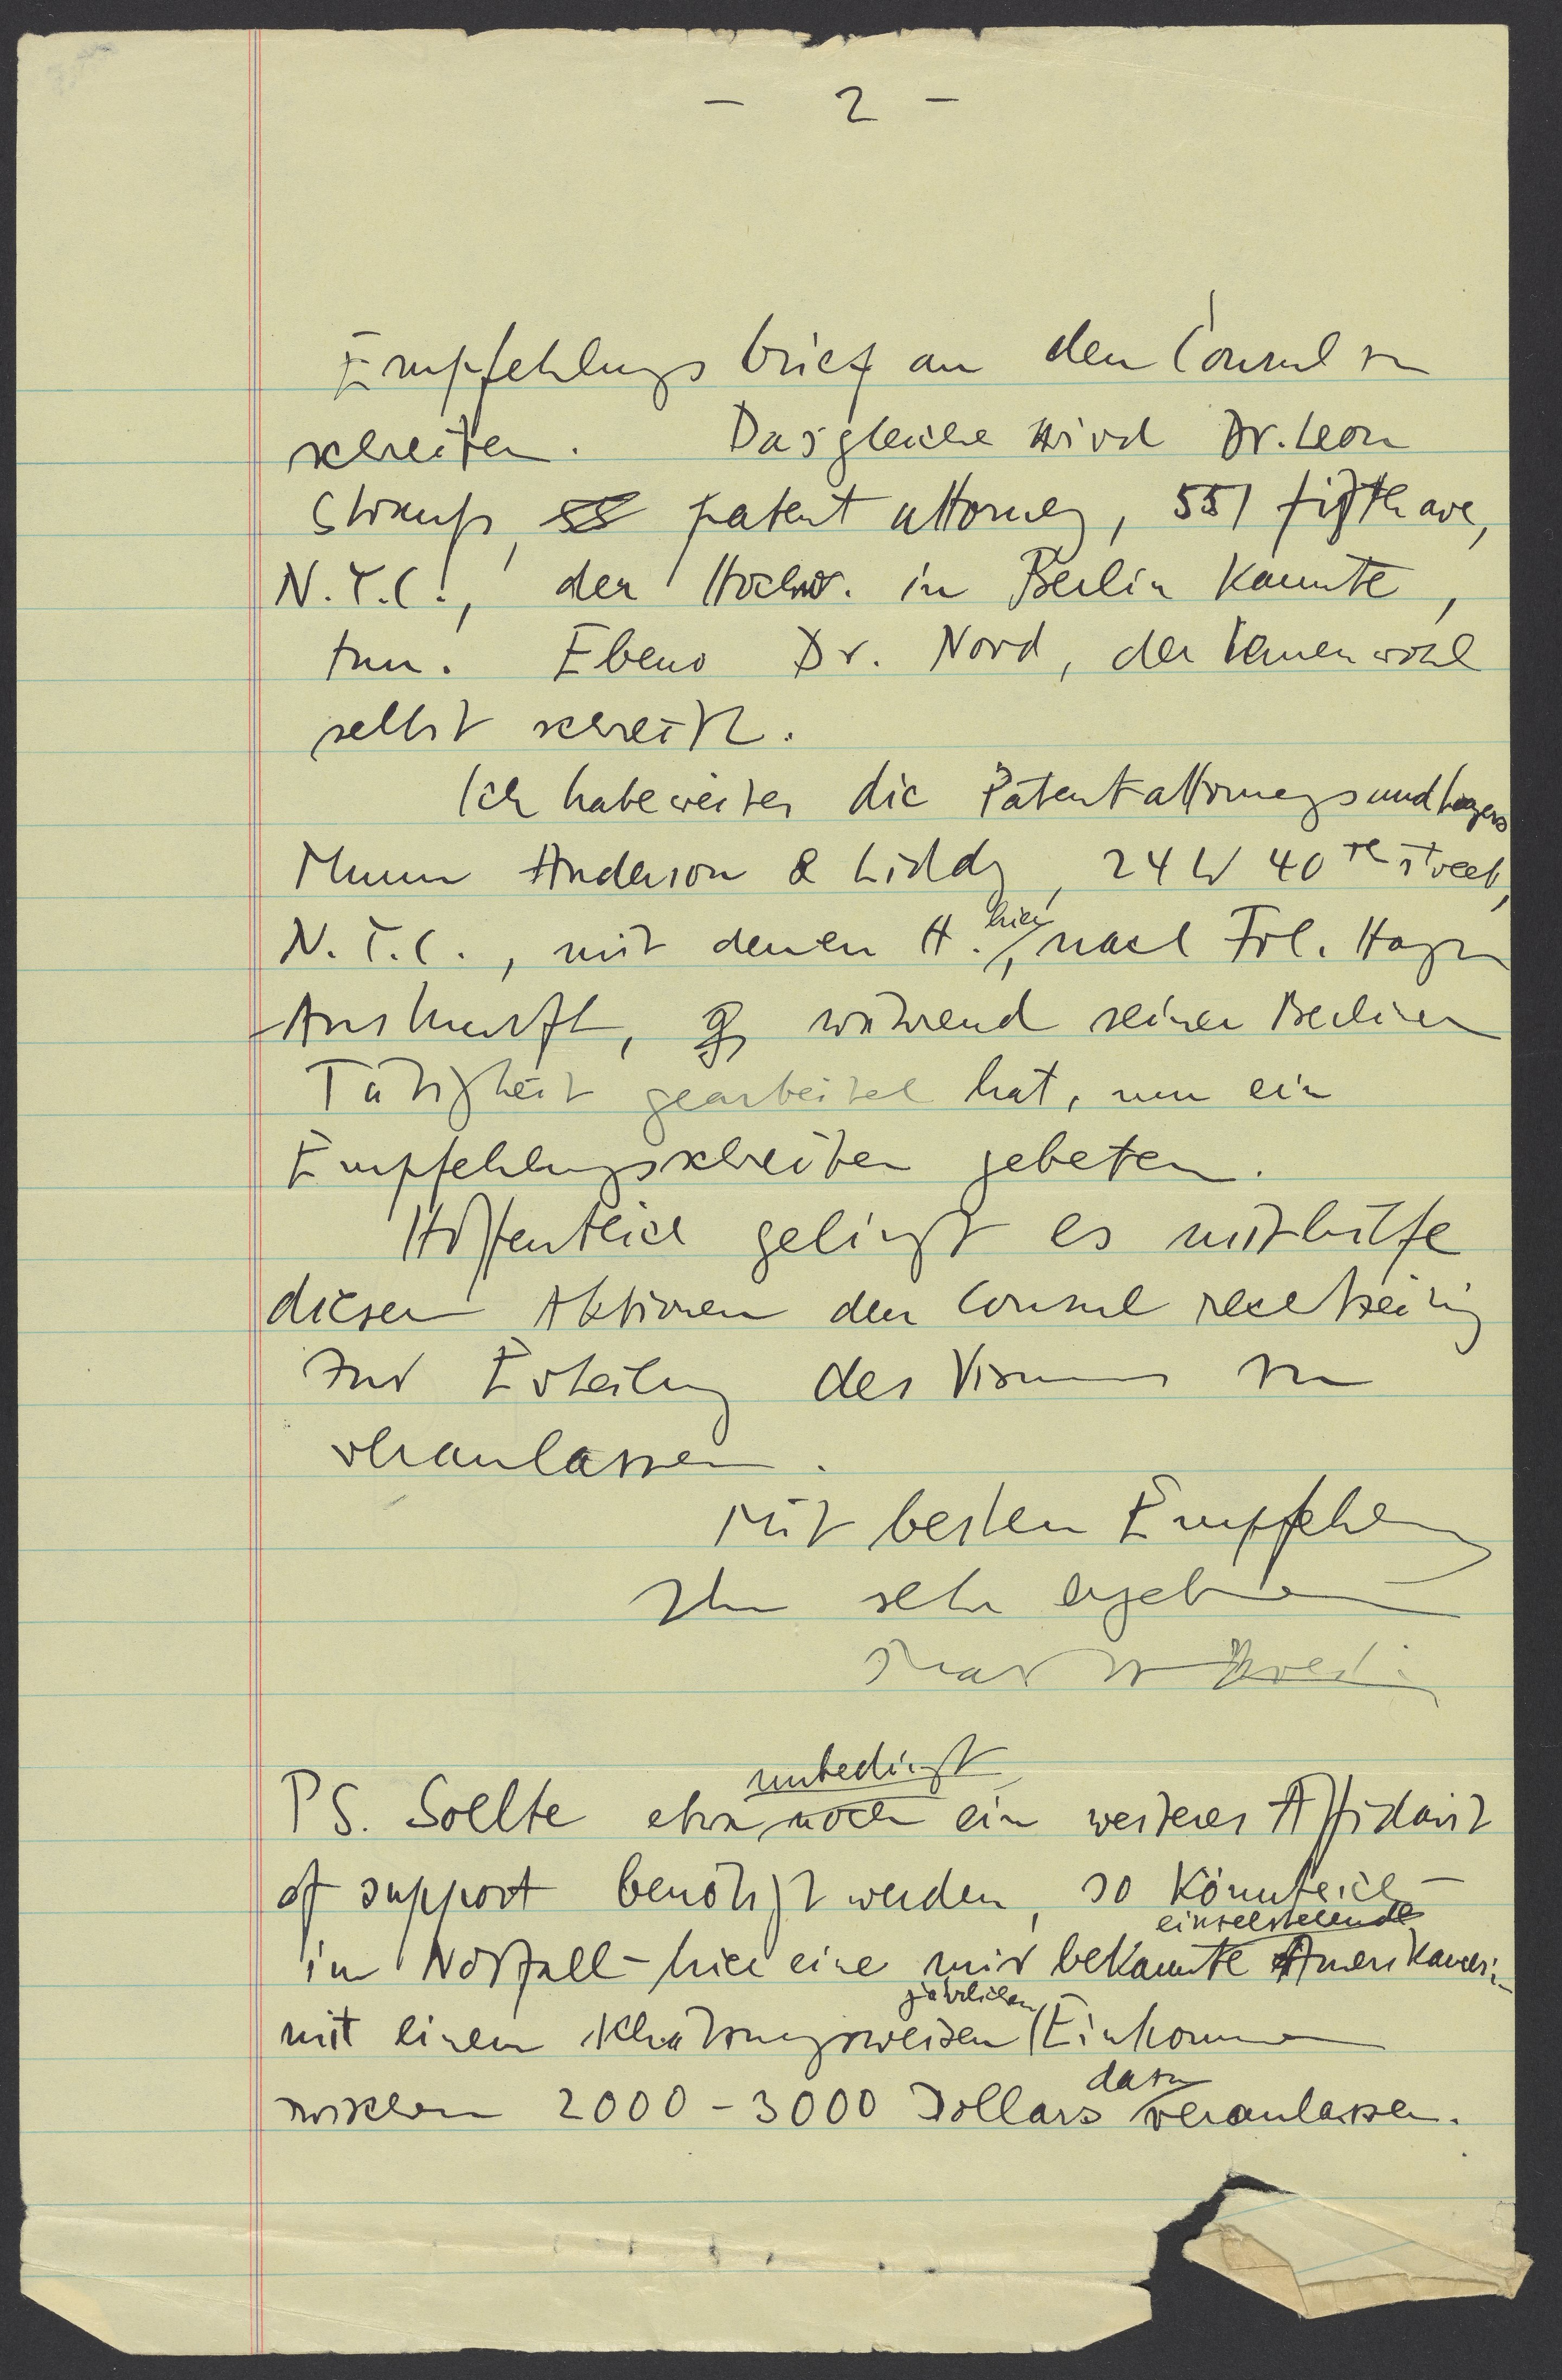 - 2 -
Empfehlungsbrief an den Consul zu
schreiben. Dasgleiche wird Dr. Leon
patent attorney, 551 fifth ave,
N.Y.C., der Hochw. in Berlin kannte,
tun. Ebenso Dr. Nord, der Ihnen wohl
selbst schreibt.
Ich habe weiter die Patentattorneys und
Munn Anderson & Liddy, 24 W 40th street,
N.Y.C., mit denen H. hier, nach Frl.
Auskunft, während seiner Berliner
Tätigkeit gearbeitet hat, um ein
Empfehlungsschreiben gebeten.
Hoffentlich gelingt es mithilfe
dieser Aktionen den Consul rechtzeitig
zur Erteilung des Visums zu
veranlassen.
Mit besten Empfehlungen
Ihr sehr ergebener
PS. Sollte etwa unbedingt noch ein weiteres Affidavit
of support benötigt werden, so könnte ich -
im Notfall - hier eine mir bekannte einzelstehende Amerikanerin
mit einem schätzungsweisen jährlichen Einkommen
zwischen 2000 - 3000 Dollars dazu veranlassen.